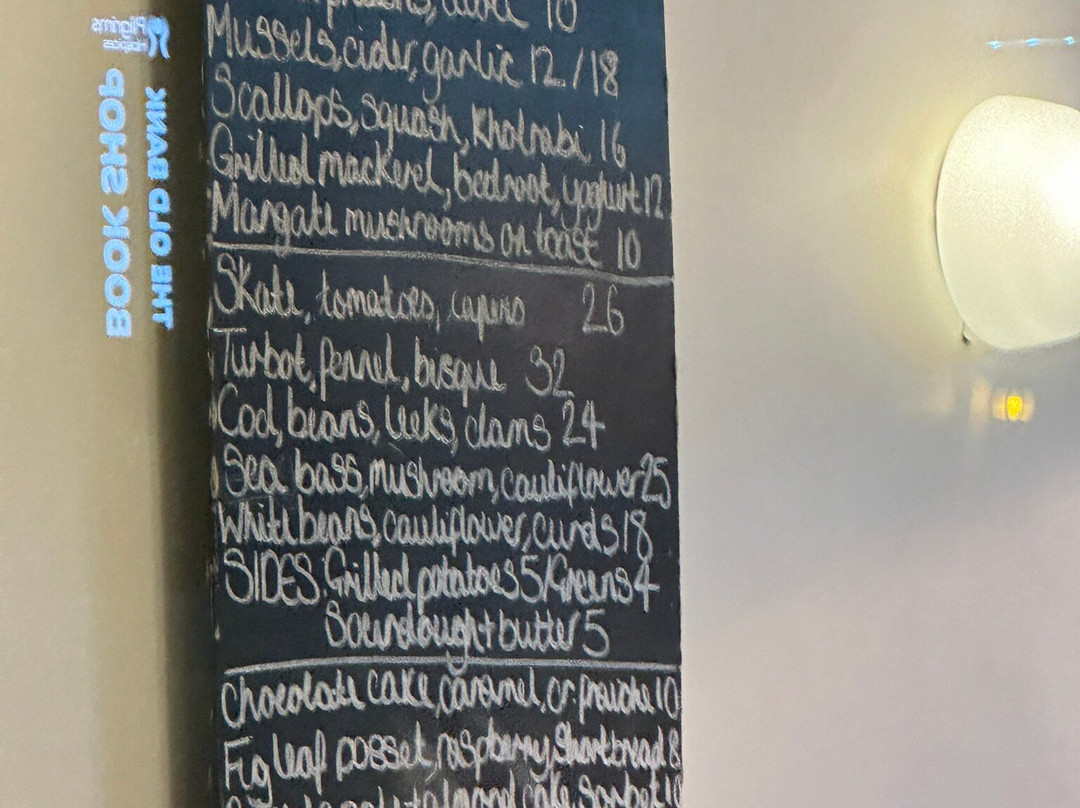 10
Mussels, cider, garlic 12/18
Scallops, squash, kholrabi 16
Grilled mackerel, beetroot, yoghurt 12
Margate mushrooms on toast 10
Skate, tomatoes, capers 26
Turbot, fennel, bisque 32
Cod, beans, leeks, clams 24
Sea bass, mushroom, cauliflower 25
White beans, cauliflower, curds 18
SIDES: Grilled potatoes 5/Greens 4
Sourdough + butter 5
Chocolate cake, caramel, cr. fraiche 10
Fig leaf posset, raspberry, shortbread 8
almond cake, sorbet 10
Pilgrims
Hospices
BOOK SHOP
THE OLD BANK